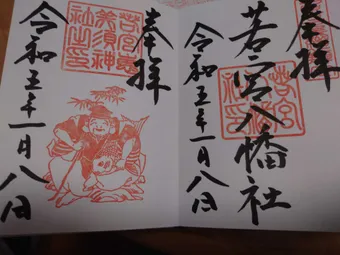 奉拝
若宮八幡社
若宮
社印
令和五年一月八日
奉拝
若宮恵
美須神
社之印
令和五年一月八日